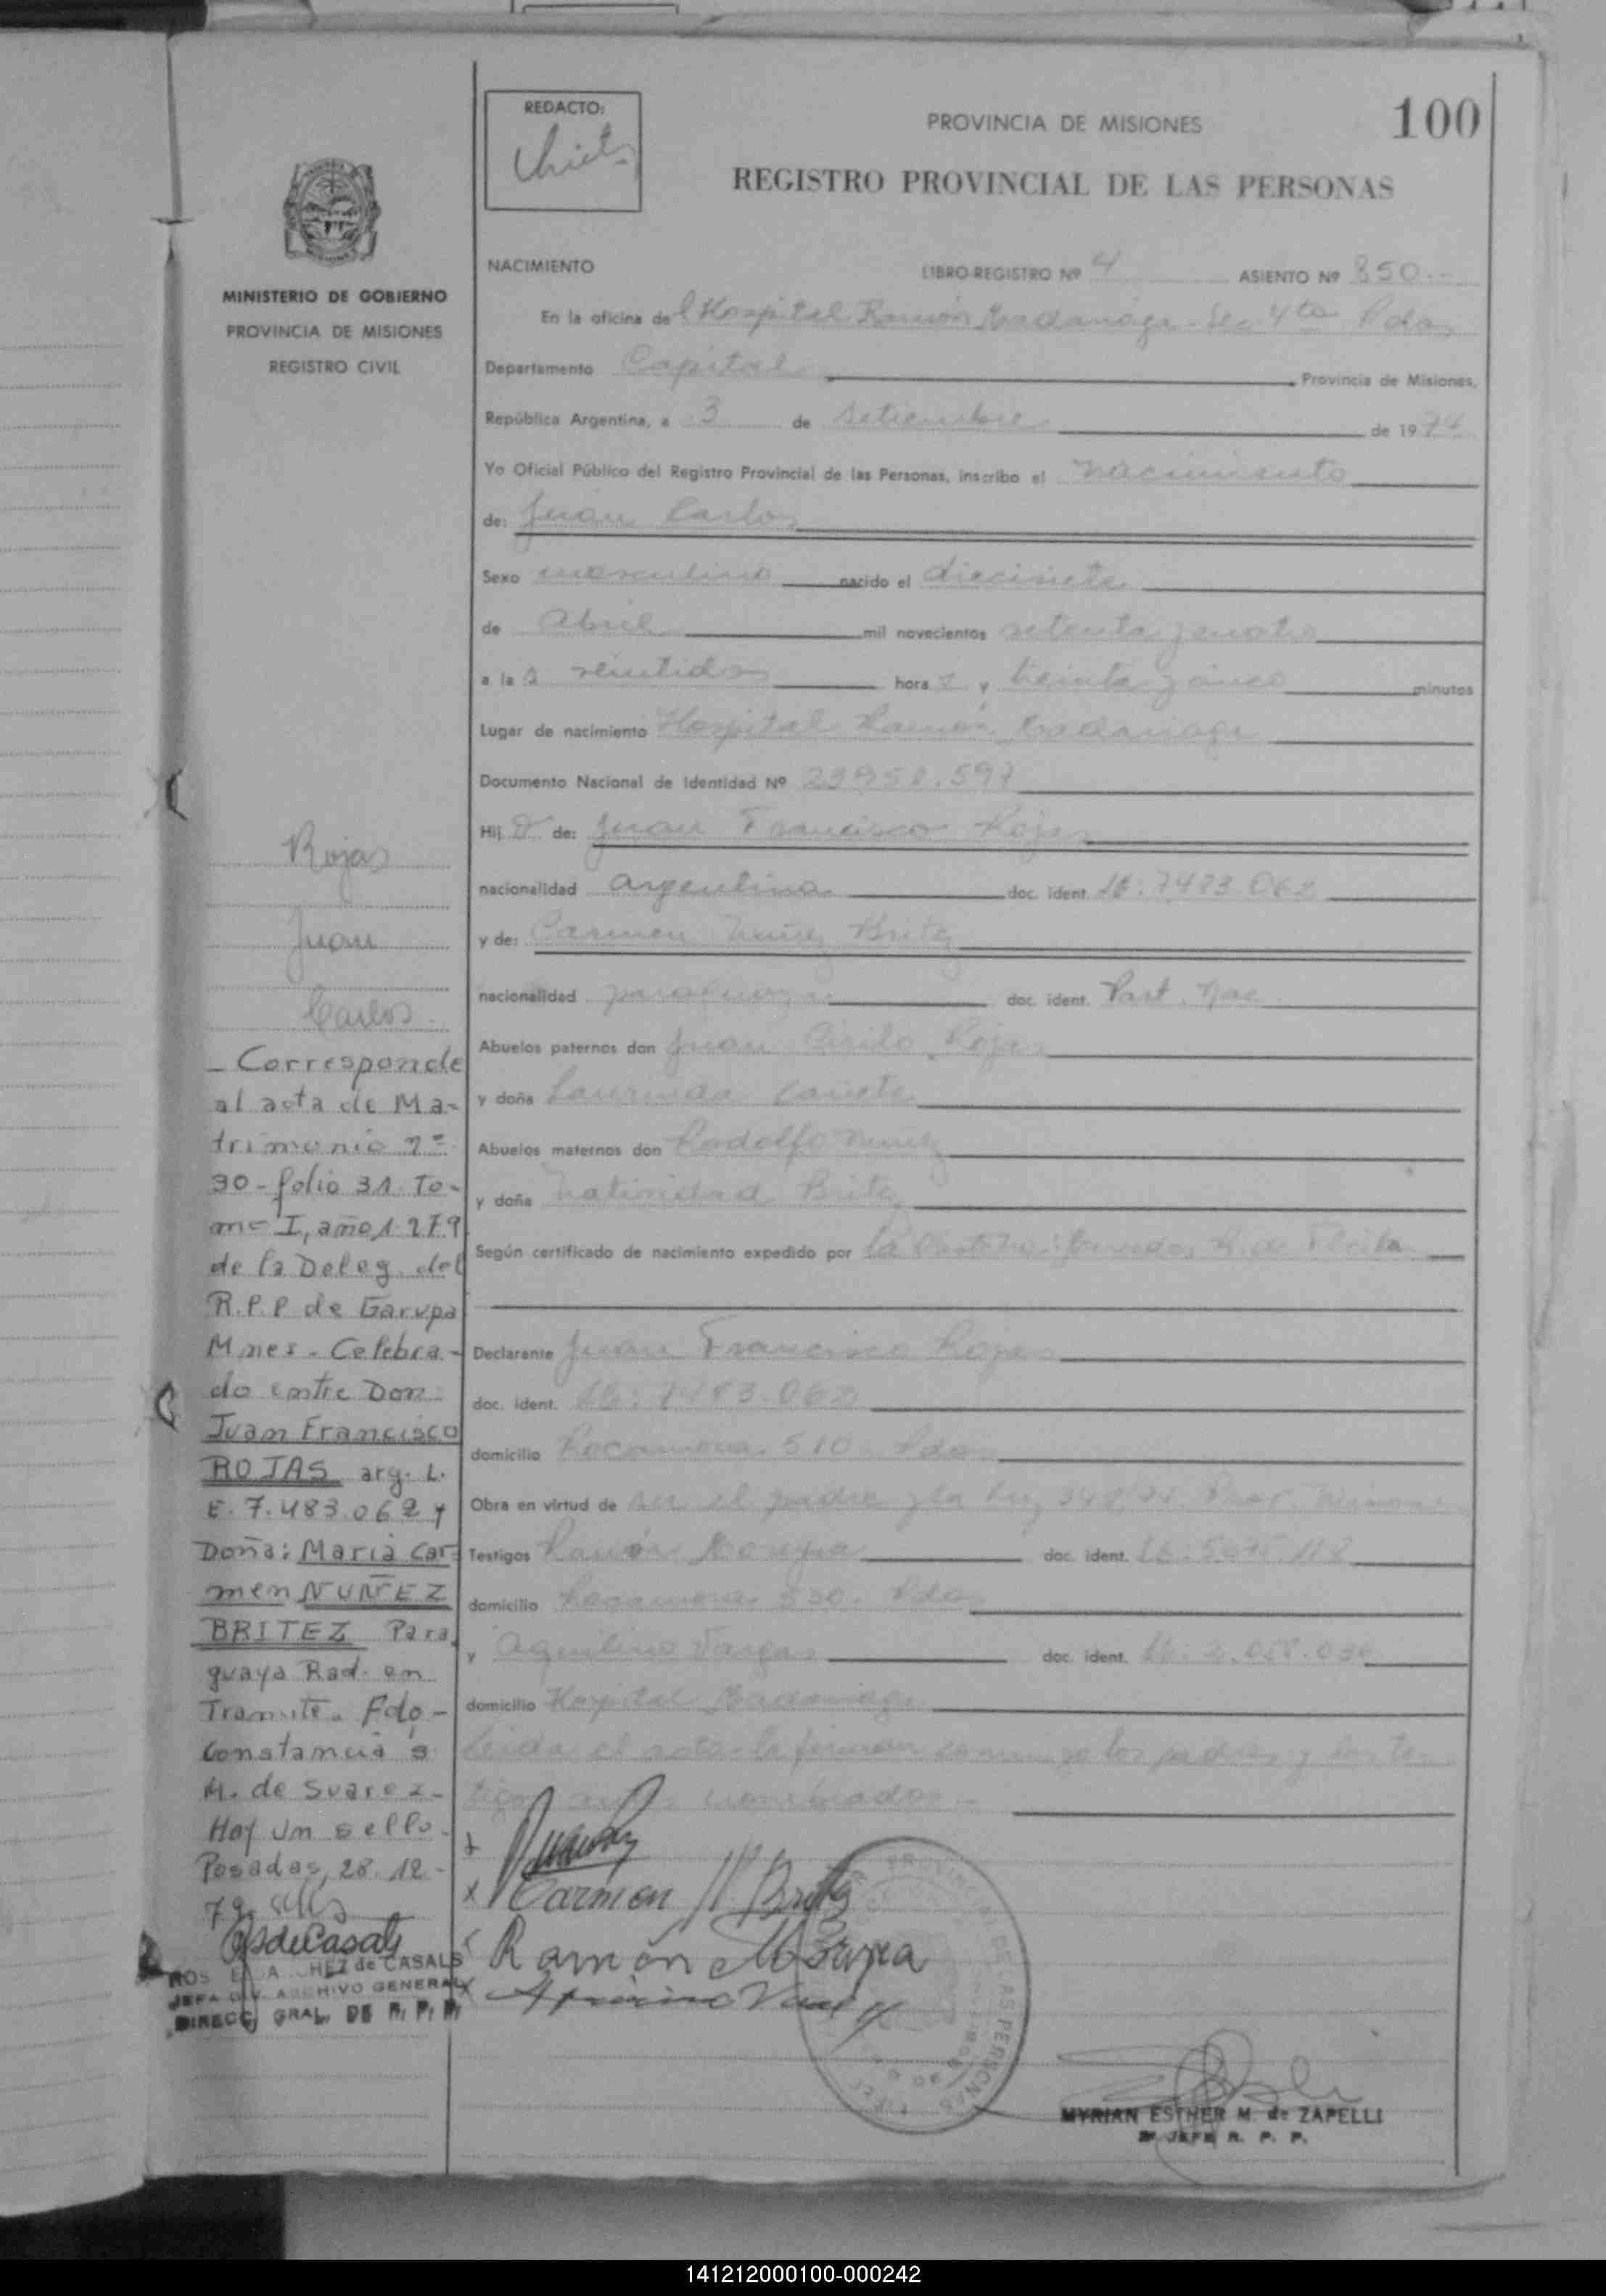 100
REDACTO:
PROVINCIA DE MISIONES
REGISTRO PROVINCIAL DE LAS PERSONAS
MINISTERIO DE GOBIERNO
PROVINCIA DE MISIONES
REGISTRO CIVIL
NACIMIENTO
LIBRO-REGISTRO Nº 4 ASIENTO Nº 850.-
En la oficina del Hospital Ramón Madariaga - Sec 4ta Pdas
Departamento Capital Provincia de Misiones,
República Argentina, a 3 de setiembre de 1974
Yo Oficial Público del Registro Provincial de las Personas, inscribo el nacimiento
de: Juan Carlos
Sexo masculino nacido el diecisiete
de Abril mil novecientos setenta y cuatro
a las veintidos horas y treinta y cinco minutos
Lugar de nacimiento Hospital Ramón Madariaga
Documento Nacional de Identidad Nº
Hijo de: Juan Francisco Rojas
nacionalidad argentina doc. ident. LE: 7483.062
y de: Carmen Nuñez Britez
nacionalidad paraguaya doc. ident. Part. Nac
Abuelos paternos don Juan Cirilo Rojas
y doña Laurinda Cañete
Abuelos maternos don Rodolfo Nuñez
y doña Natividad Britez
Según certificado de nacimiento expedido por la
Declarante Juan Francisco Rojas
doc. ident. LE: 7483.062
domicilio Rocamora 510 Pdas
Obra en virtud de ser el padre y la ley
Testigos Ramón doc. ident. LE:
domicilio Rocamora 530. Pdas
y Aquilino Vargas doc. ident. LE: 2.058.030
domicilio Hospital Madariaga
Leida el acta la firman conmigo los padres y los tes-
tigos antes nombrados.-
Carmen N Britez
Ramón
MYRIAN ESTHER M. de ZAPELLI
2º JEFE R. P. P.
Rojas
Juan
Carlos
- Corresponde
al acta de Ma-
trimonio nº
30 - folio 31 To-
mo I, año 1.979
de la Deleg. del
R.P.P de Garupa
Mnes - Celebra-
do entre Don
Juan Francisco
ROJAS arg. L.
E. 7.483.062 y
Doña: Maria Car-
men NUÑEZ
BRITEZ Para
guaya Rad. en
Tramite. Fdo -
Constancia S
M. de Suarez -
Hay un sello.
Posadas, 28. 12 -
79.
HEZ de CASALS
JEFA DIV. ARCHIVO GENERAL
DIRECC. GRAL. DE R. P. P.
141212000100-000242